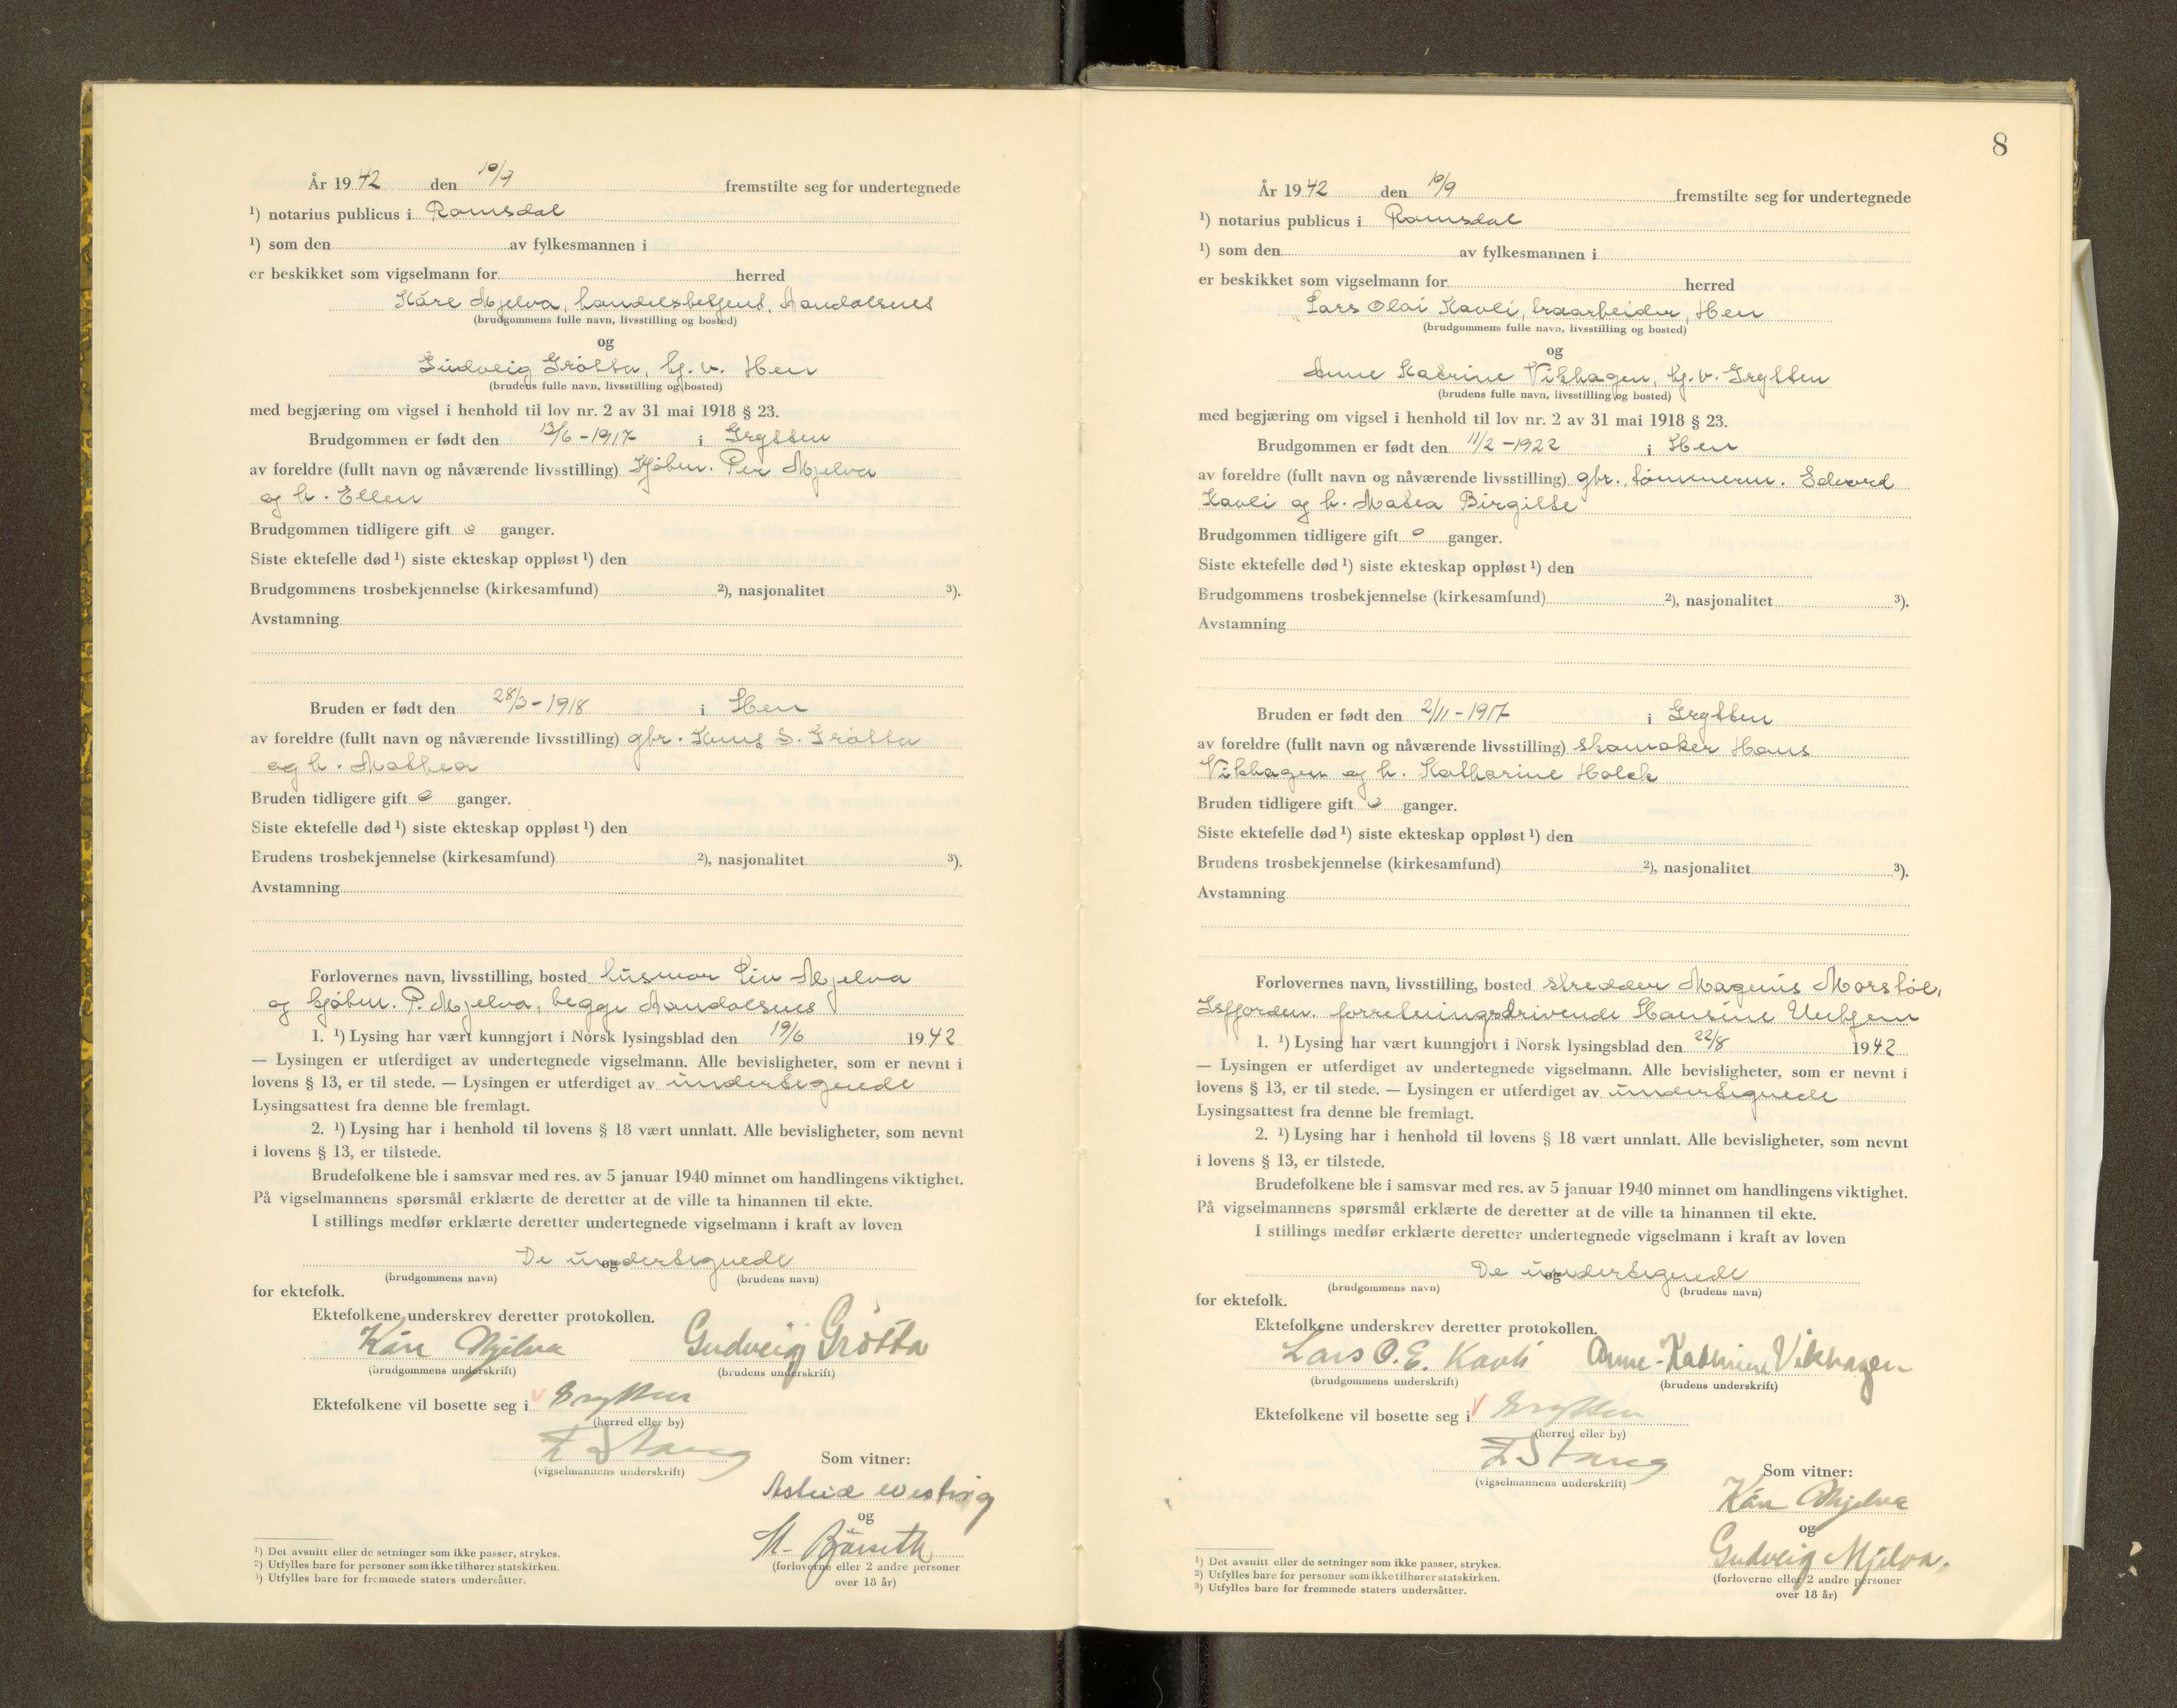 År 19 42 den 10/9 fremstilte seg for undertegnede
¹) notarius publicus i Romsdal
¹) som den av fylkesmannen i
er beskikket som vigselmann for herred
Kåre Mjelva, handelsbetjent, Aandalsnes
(brudgommens fulle navn, livsstilling og bosted)
og
Gudveig Grötta, hj.v. Hen
(brudens fulle navn, livsstilling og bosted)
med begjæring om vigsel i henhold til lov nr. 2 av 31 mai 1918 § 23.
Brudgommen er født den 13/6 - 1917 i Grytten
av foreldre (fullt navn og nåværende livsstilling) Kjøbm. Per Mjelva
og h. Ellen
Brudgommen tidligere gift 0 ganger.
Siste ektefelle død ¹) siste ekteskap oppløst ¹) den
Brudgommens trosbekjennelse (kirkesamfund) ²), nasjonalitet ³).
Avstamning
Bruden er født den 28/3 - 1918 i Hen
av foreldre (fullt navn og nåværende livsstilling) gbr. S. Grötta
og h. Mathea
Bruden tidligere gift 0 ganger.
Siste ektefelle død ¹) siste ekteskap oppløst ¹) den
Brudens trosbekjennelse (kirkesamfund) ²), nasjonalitet ³).
Avstamning
Forlovernes navn, livsstilling, bosted husmor Liv Mjelva
og kjøbm. P. Mjelva, begge Aandalsnes
1. ¹) Lysing har vært kunngjort i Norsk lysingsblad den 19/6 19 42
— Lysingen er utferdiget av undertegnede vigselmann. Alle bevisligheter, som er nevnt i
lovens § 13, er til stede. — Lysingen er utferdiget av undertegnede
Lysingsattest fra denne ble fremlagt.
2. ¹) Lysing har i henhold til lovens § 18 vært unnlatt. Alle bevisligheter, som nevnt
i lovens § 13, er tilstede.
Brudefolkene ble i samsvar med res. av 5 januar 1940 minnet om handlingens viktighet.
På vigselmannens spørsmål erklærte de deretter at de ville ta hinannen til ekte.
I stillings medfør erklærte deretter undertegnede vigselmann i kraft av loven
De undertegnede
og
(brudgommens navn) (brudens navn)
for ektefolk.
Ektefolkene underskrev deretter protokollen.
Kåre Mjelva Gudveig Grötta
(brudgommens underskrift) (brudens underskrift)
Ektefolkene vil bosette seg i Grytten
(herred eller by)
Stang
(vigselmannens underskrift)
Som vitner:
Astrid
og
M.
(forloverne eller 2 andre personer
over 18 år)
¹) Det avsnitt eller de setninger som ikke passer, strykes.
²) Utfylles bare for personer som ikke tilhører statskirken.
³) Utfylles bare for fremmede staters undersåtter.
8
År 19 42 den 10/9 fremstilte seg for undertegnede
¹) notarius publicus i Romsdal
¹) som den av fylkesmannen i
er beskikket som vigselmann for herred
Lars Olai Kavli, traarbeider, Hen
(brudgommens fulle navn, livsstilling og bosted)
og
Anne Katrine Vikhagen, hj.v. Grytten
(brudens fulle navn, livsstilling og bosted)
med begjæring om vigsel i henhold til lov nr. 2 av 31 mai 1918 § 23.
Brudgommen er født den 11/2 - 1922 i Hen
av foreldre (fullt navn og nåværende livsstilling) gbr., tömmerm. Edvard
Kavli og h. Matea Birgitte
Brudgommen tidligere gift 0 ganger.
Siste ektefelle død ¹) siste ekteskap oppløst ¹) den
Brudgommens trosbekjennelse (kirkesamfund) ²), nasjonalitet ³).
Avstamning
Bruden er født den 2/11 - 1917 i Grytten
av foreldre (fullt navn og nåværende livsstilling) skomaker Hans
Vikhagen og h. Katharine Holck
Bruden tidligere gift 0 ganger.
Siste ektefelle død ¹) siste ekteskap oppløst ¹) den
Brudens trosbekjennelse (kirkesamfund) ²), nasjonalitet ³).
Avstamning
Forlovernes navn, livsstilling, bosted skredder Magnus Morstöl,
Isfjorden. forretningsdrivende Hansine Unhjem
1. ¹) Lysing har vært kunngjort i Norsk lysingsblad den 22/8 19 42
— Lysingen er utferdiget av undertegnede vigselmann. Alle bevisligheter, som er nevnt i
lovens § 13, er til stede. — Lysingen er utferdiget av undertegnede
Lysingsattest fra denne ble fremlagt.
2. ¹) Lysing har i henhold til lovens § 18 vært unnlatt. Alle bevisligheter, som nevnt
i lovens § 13, er tilstede.
Brudefolkene ble i samsvar med res. av 5 januar 1940 minnet om handlingens viktighet.
På vigselmannens spørsmål erklærte de deretter at de ville ta hinannen til ekte.
I stillings medfør erklærte deretter undertegnede vigselmann i kraft av loven
De undertegnede
og
(brudgommens navn) (brudens navn)
for ektefolk.
Ektefolkene underskrev deretter protokollen.
Lars O. E. Kavli Anne-Kathrine Vikhagen
(brudgommens underskrift) (brudens underskrift)
Ektefolkene vil bosette seg i Grytten
(herred eller by)
Stang
(vigselmannens underskrift)
Som vitner:
Kåre Mjelva
og
Gudveig Mjelva.
(forloverne eller 2 andre personer
over 18 år)
¹) Det avsnitt eller de setninger som ikke passer, strykes.
²) Utfylles bare for personer som ikke tilhører statskirken.
³) Utfylles bare for fremmede staters undersåtter.